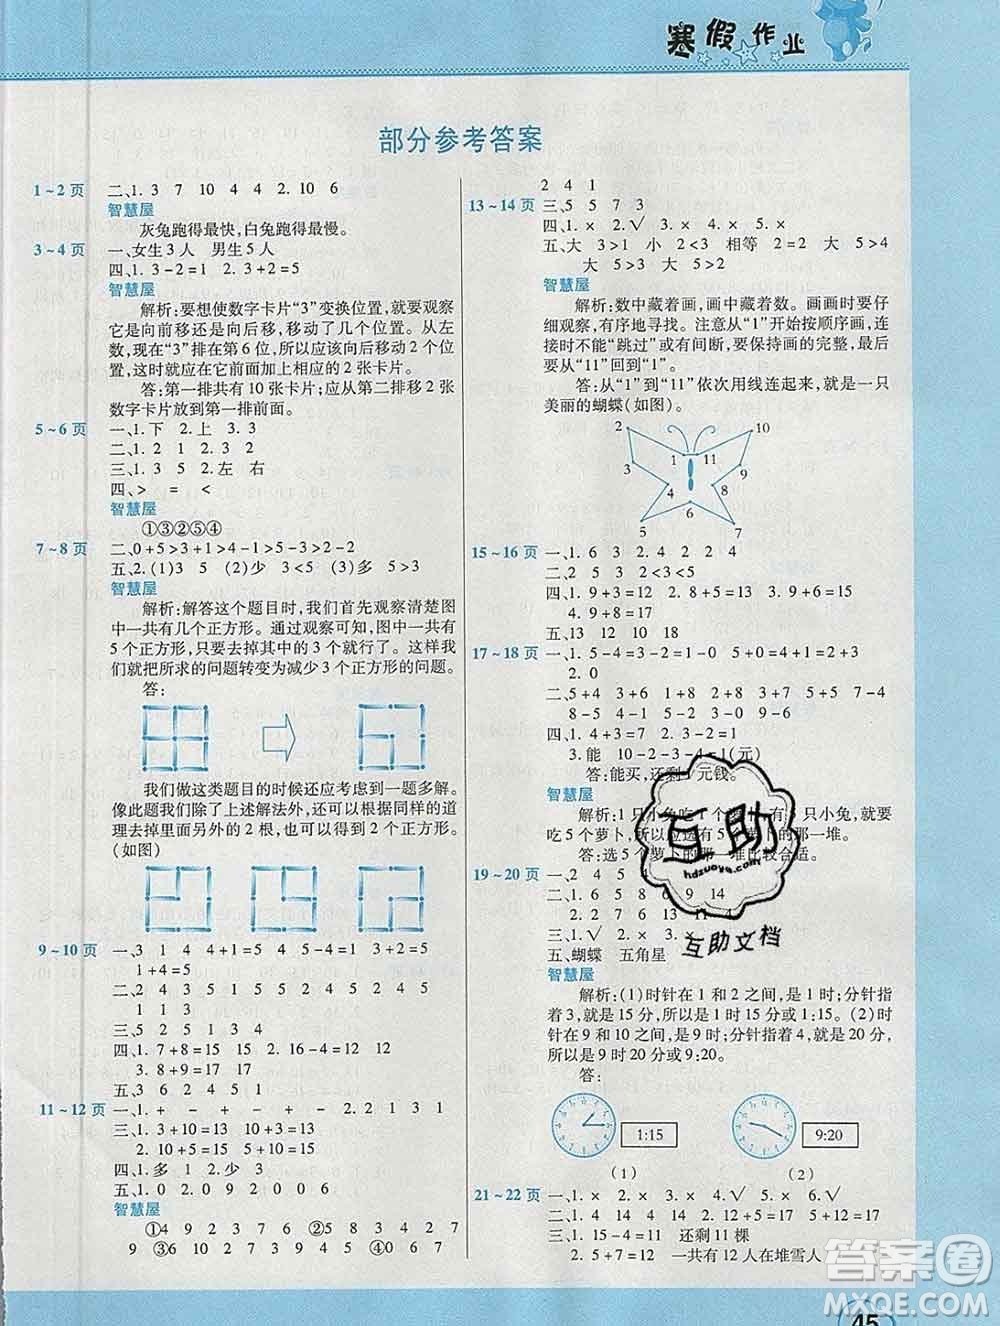 寒假作业
部分参考答案
1~2页 二、1. 3 7 10 4 4 2. 10 6
智慧屋
灰兔跑得最快,白兔跑得最慢。
3~4页 一、女生3人 男生5人
四、1. 3-2=1 2. 3+2=5
智慧屋
解析:要想使数字卡片“3”变换位置,就要观察
它是向前移还是向后移,移动了几个位置。从左
数,现在“3”排在第6位,所以应该向后移动2个位
置,这时就应该在它前面加上相应的2张卡片。
答:第一排共有10张卡片;应从第二排移2张
数字卡片放到第一排前面。
5~6页 一、1. 下 2. 上 3. 3
二、1. 2 1 2. 4 5
三、1. 3 5 2. 左 右
四、> = <
智慧屋
①③②⑤④
7~8页 二、0+5>3+1>5-2>3-1>5-3>2-2
五、2. (1)3 5 (2)少 (3)多 5>3
智慧屋
解析:解答这个题目时,我们首先观察清楚图
中一共有几个正方形。通过观察可知,图中共有
5个正方形,只要去掉其中的3个就行了。这样我
们就把所求的问题转变为减少3个正方形的问题。
答:
我们做这类题目的时候还应考虑到一题多解。
像此题我们除了上述解法外,还可以根据同样的道
理去掉里面另外的2根,也可以得到2个正方形。
(如图)
9~10页 一、3 1 4 4+1=5 5 2 3 3+2=5
1+4=5
二、2 4 3 2 4 5 1 5 5 5 4 5 2
1 1 3
三、5 2 5 1 3 4
四、1. 7+8=15 15 2. 16-4=12 12
3. 8+9=17 17
五、3 6 2 4 5 1
11~12页 一、1. + - + - + - 2. 2 1 3 1
三、1. 3+10=13 10+3=13
2. 10+5=15 5+10=15
四、1. 多 1 2. 少 3
五、1. 0 2 9 0 2. 0 0 6
智慧屋
①4 9 2 3 7 6 ②5 8 3 4 2 7
9 ③6 2 9 7 5 3 1 ④0 7 1 6
2 4 1
13~14页 三、5 5 7 3
四、1. × 2. √ 3. × 4. × 5. ×
五、大 3>1 小 2<3 相等 2=2 大 5>4
大 5>3 大 5>4
智慧屋
解析:数中藏着画,画中藏着数。画画时要仔
细观察,有序地寻找。注意从“1”开始按顺序画,
连接时不能“跳过”或有间断,要保持画的完整,最
后要从“11”回到“1”。
答:从“1”到“11”依次用线连起来,就是一只
美丽的蝴蝶(如图)。
2 10
1 11
3 9
4 8
6
5 7
15~16页 一、1. 6 3 2. 4 2 2 4
四、1. 9+3=12 2. 3+9=12 3. 8+6=14
4. 9+8=17
五、13 12 10 18
17~18页 一、1. 5-4=3-2 5+0=4+1=2+3
2. 0
二、5+4 9+0 3+4 2+5 7+0 7-4
8-5 4-1 5-2 3-0 9-6
四、1. 4+3=7 2. 3-2=1
3. 能 10-2-3-4=1(元)
答:能买,还剩1元钱。
智慧屋
答:选5个萝卜的那一堆比较合适。
19~20页 一、2 4 5
五、蝴蝶 五角星
智慧屋
解析:(1)时针在1和2之间,是1时;分针指
着3,就是15分,所以是1时15分或1:15。(2)时
针在9和10之间,是9时;分针指着4,就是20分,
所以是9时20分或9:20。
答:
1:15 9:20
(1) (2)
21~22页 一、1. × 2. × 3. × 4. √ 5. √
二、1. 4 14 4 14 2. 0 0 2 2
三、1. 15-4=11 还剩11棵
2. 5+7=12 一共有12人在堆雪人
互助
hdzuoye.com
互助文档
答案圈
MXQE.COM
45